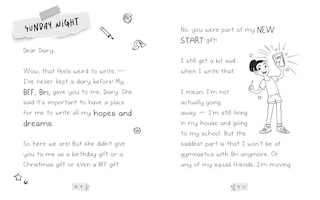 SUNDAY NIGHT
Dear Diary,
Wow, that feels weird to write —
I've never kept a diary before! My
BFF, Bri, gave you to me, Diary. She
said it's important to have a place
for me to write all my hopes and
dreams.
So here we are! But she didn't give
you to me as a birthday gift or a
Christmas gift or even a BFF gift.
4
No, you were part of my NEW
START gift!
I still get a bit sad
when I write that.
I mean, I'm not
actually going
away — I'm still living
in my house and going
to my school. But the
saddest part is that I won't be at
gymnastics with Bri anymore. Or
any of my squad friends. I'm moving
5